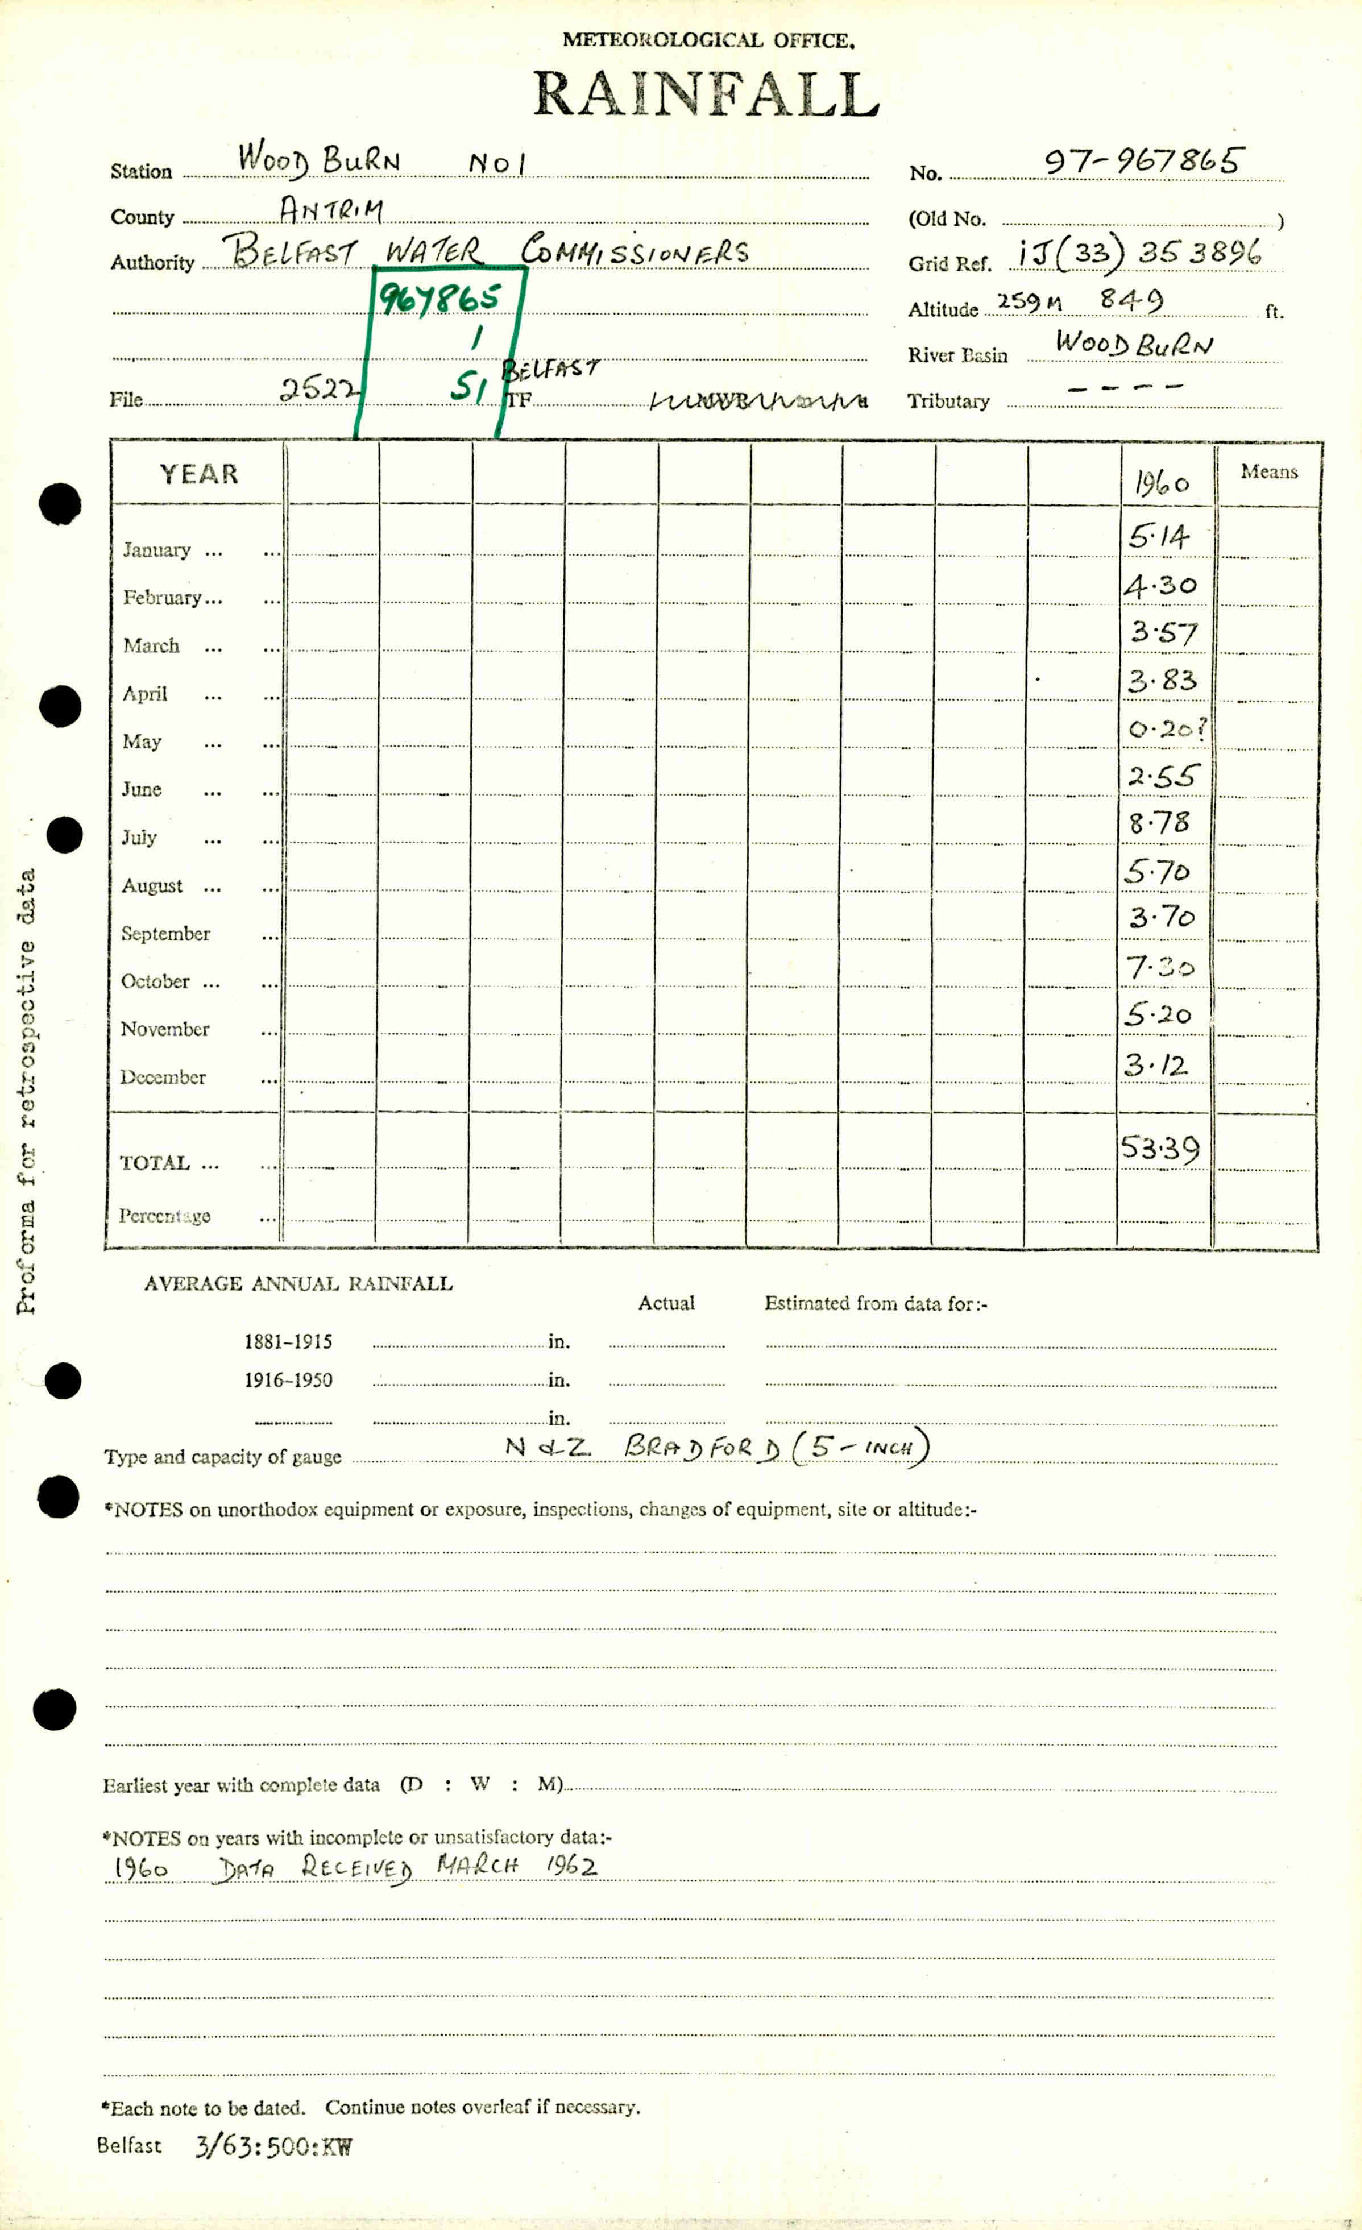 METEOROLOGICAL OFFICE.
RAINFALL
Station WOODBURN NO 1 No. 97-967865
County ANTRIM (Old No. )
Authority BELFAST WATER COMMISSIONERS Grid Ref. iJ(33) 353896
967865 Altitude 259M 849 ft.
1
River Basin WOODBURN
BELFAST
File 2522 51 TF Tributary - - - -
YEAR 1960 Means
January ... ... 5.14
February... ... 4.30
March ... ... 3.57
April ... ... 3.83
May ... ... 0.20?
June ... ... 2.55
July ... ... 8.78
August ... ... 5.70
September ... 3.70
October ... ... 7.30
November ... 5.20
December ... 3.12
TOTAL ... ... 53.39
Percentage ...
Proforma for retrospective data
AVERAGE ANNUAL RAINFALL
Actual Estimated from data for:-
1881-1915 in.
1916-1950 in.
in.
Type and capacity of gauge N & Z BRADFORD (5-INCH)
*NOTES on unorthodox equipment or exposure, inspections, changes of equipment, site or altitude:-
Earliest year with complete data (D : W : M)
*NOTES on years with incomplete or unsatisfactory data:-
1960 DATA RECEIVED MARCH 1962
*Each note to be dated. Continue notes overleaf if necessary.
Belfast 3/63:500:KW